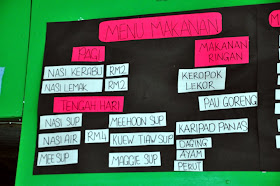 MENU MAKANAN
PAGI
NASI KERABU RM2
NASI LEMAK RM2
TENGAH HARI
NASI SUP
NASI AIR
MEE SUP
RM4
MEEHOON SUP
KUEW TIAW SUP
MAGGIE SUP
MAKANAN
RINGAN
KEROPOK
LEKOR
PAU GORENG
KARIPAD PANAS
DAGING
AYAM
PERUT